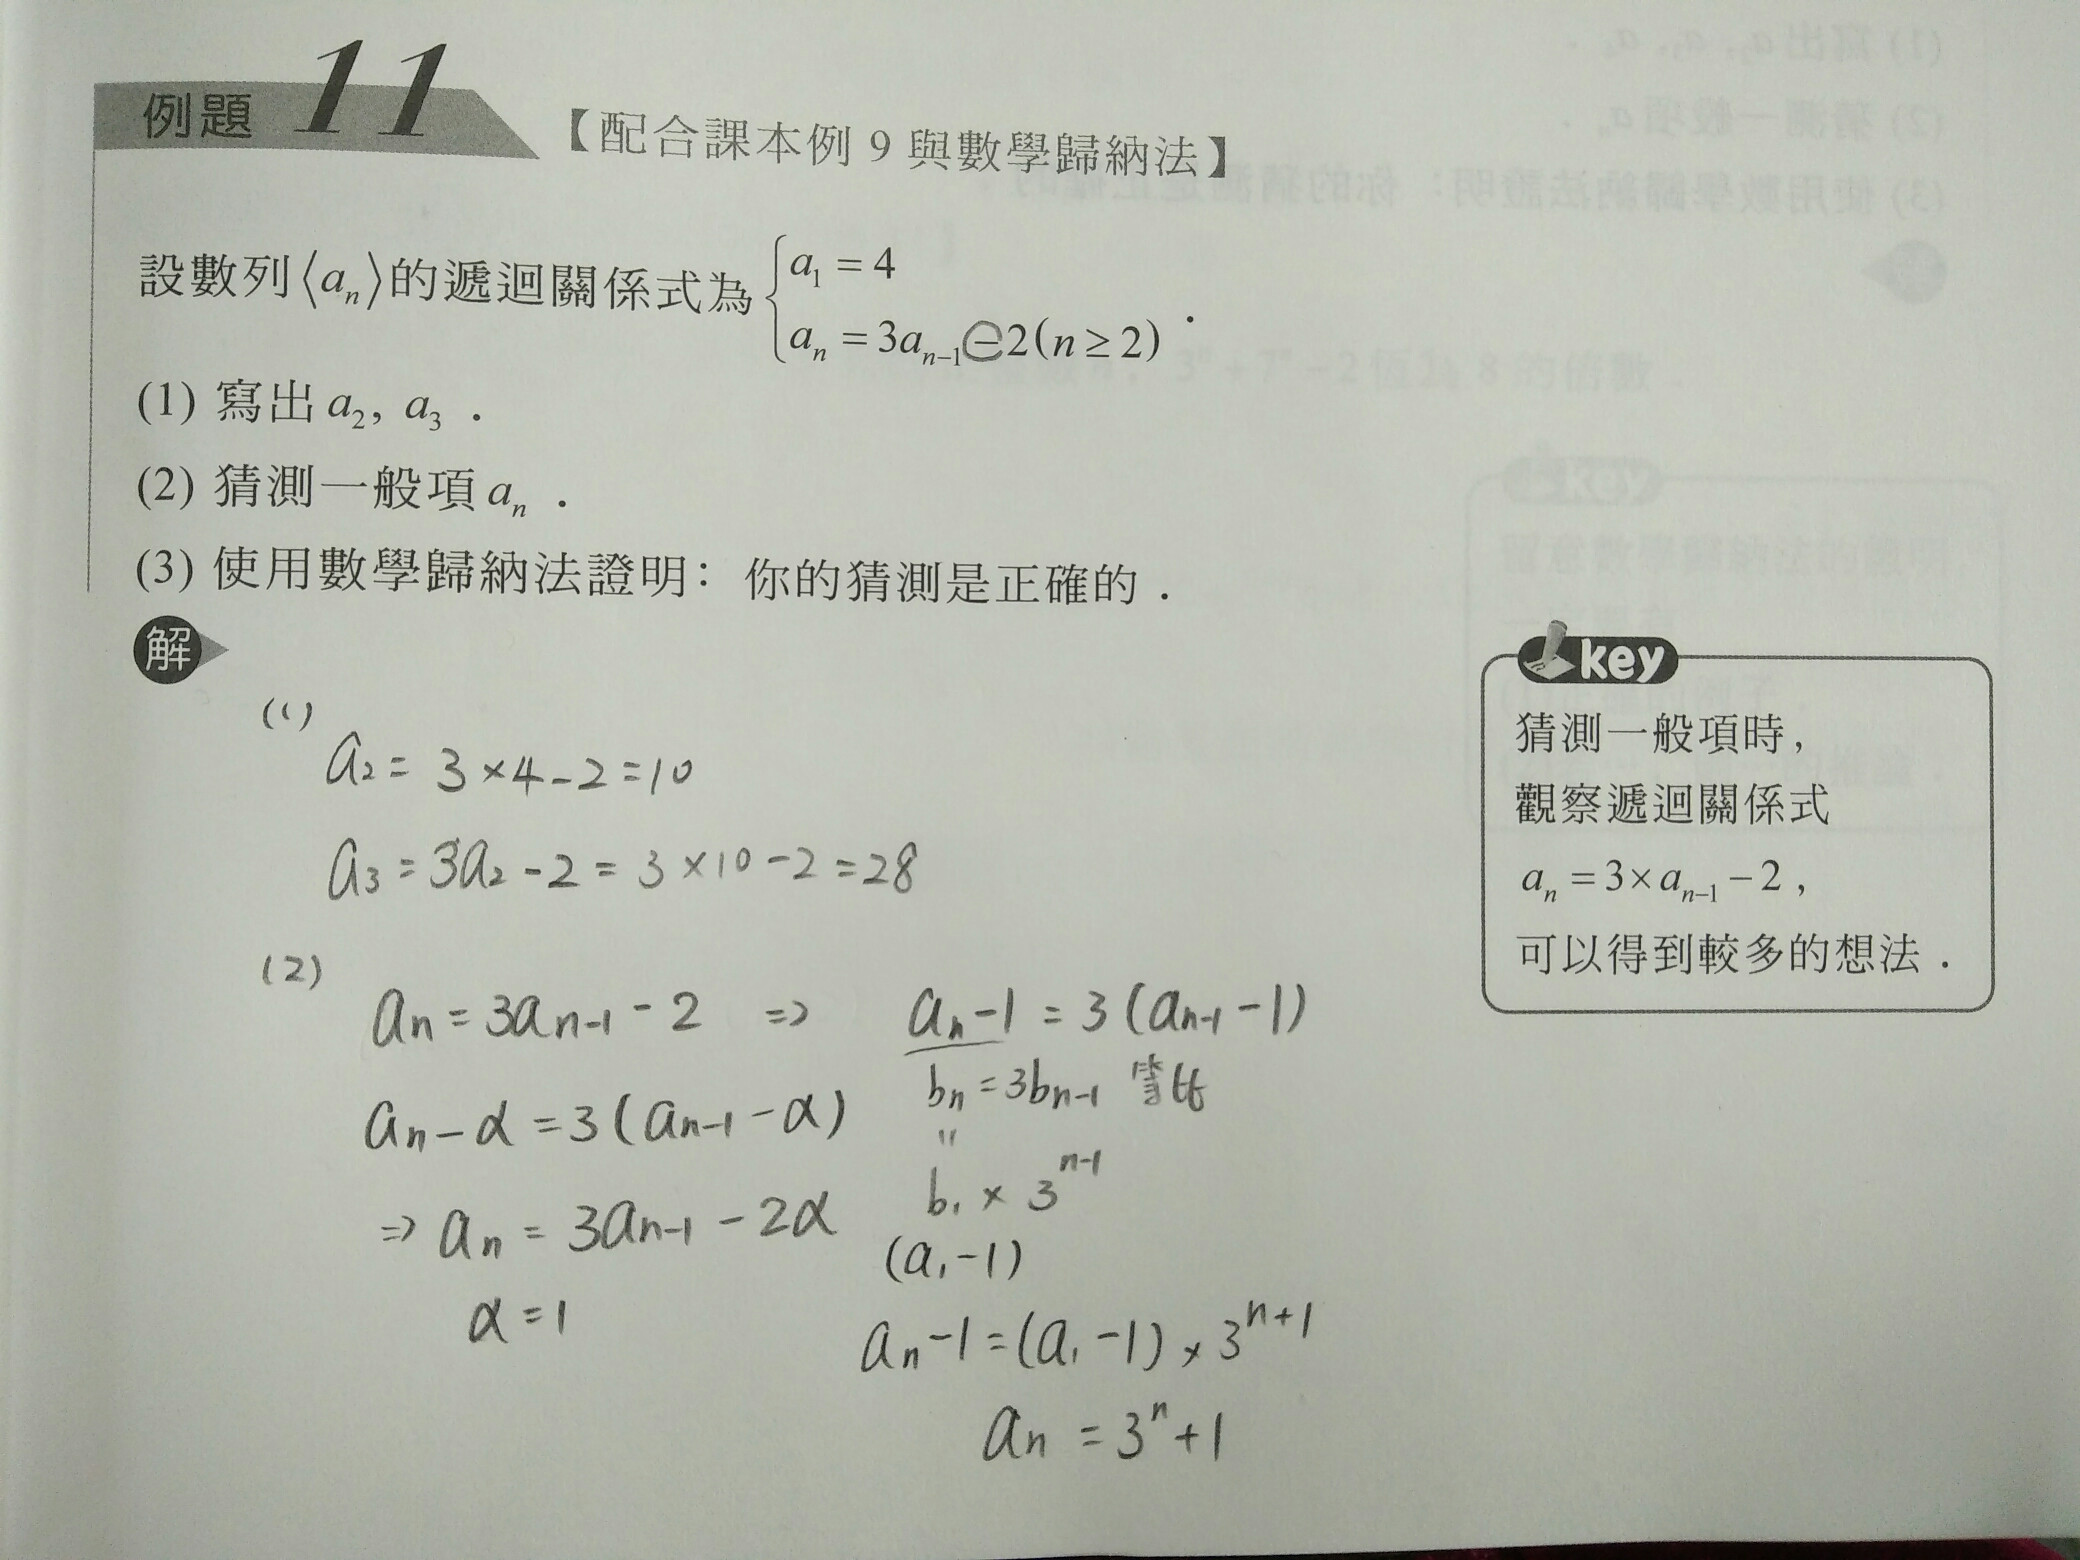 例題 11
【配合課本例 9 與數學歸納法】
設數列⟨aₙ⟩的遞迴關係式為 { a₁ = 4
aₙ = 3aₙ₋₁ − 2 (n ≥ 2) .
(1) 寫出 a₂, a₃ .
(2) 猜測一般項 aₙ .
(3) 使用數學歸納法證明：你的猜測是正確的 .
解
(1)
a₂ = 3 × 4 - 2 = 10
a₃ = 3a₂ - 2 = 3 × 10 - 2 = 28
(2)
aₙ = 3aₙ₋₁ - 2 ⇒
aₙ - α = 3(aₙ₋₁ - α)
⇒ aₙ = 3aₙ₋₁ - 2α
α = 1
aₙ - 1 = 3(aₙ₋₁ - 1)
bₙ = 3bₙ₋₁
"
b₁ × 3ⁿ⁻¹
(a₁ - 1)
aₙ - 1 = (a₁ - 1) × 3ⁿ⁺¹
aₙ = 3ⁿ + 1
key
猜測一般項時，
觀察遞迴關係式
aₙ = 3 × aₙ₋₁ − 2 ,
可以得到較多的想法 .